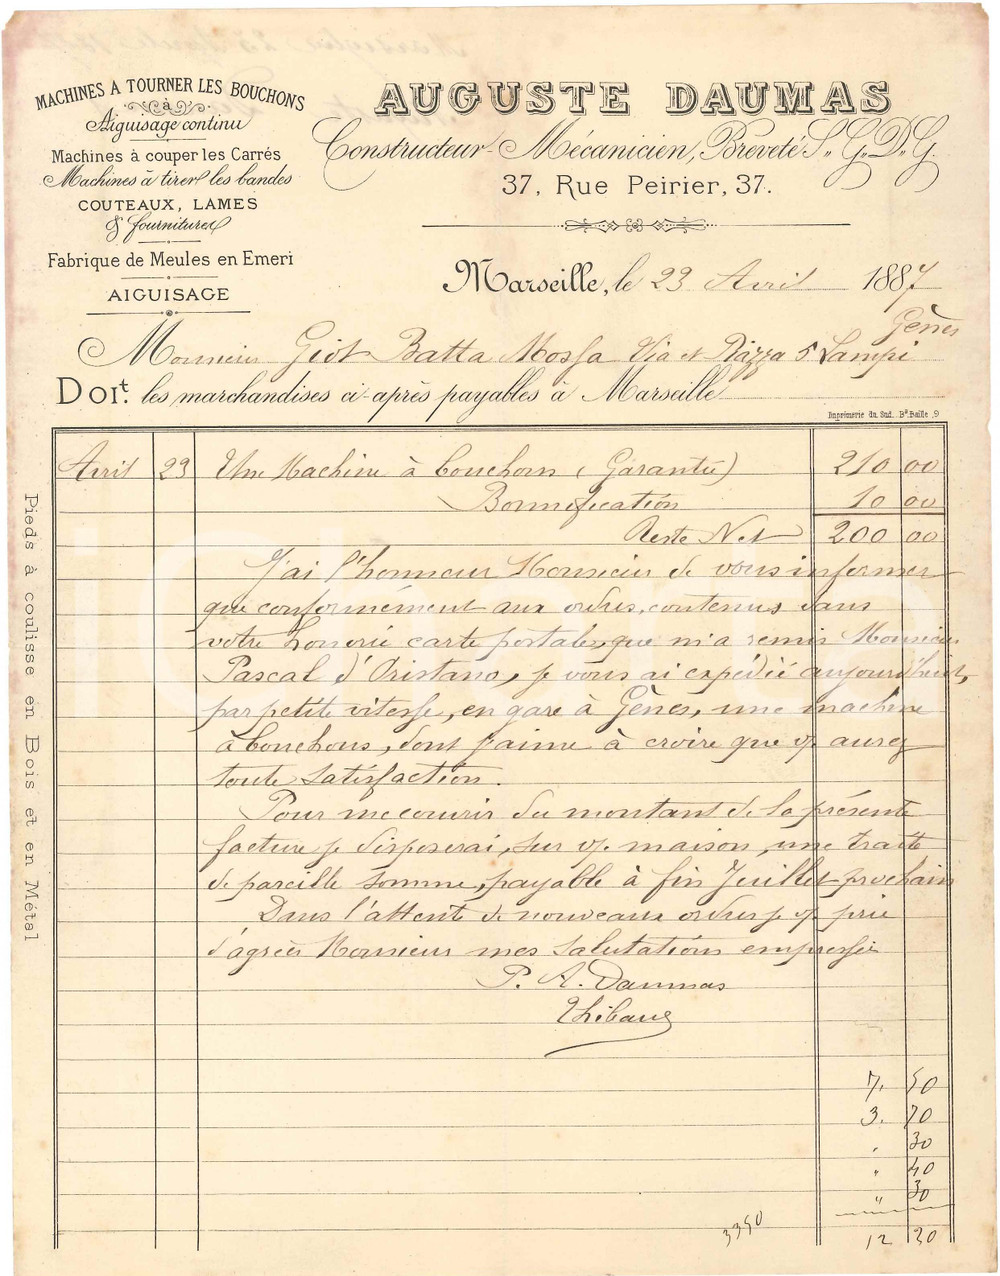 MACHINES A TOURNER LES BOUCHONS
à
Aiguisage continu
Machines à couper les Carrés
Machines à tirer les bandes
COUTEAUX, LAMES
& fournitures
Fabrique de Meules en Emeri
AIGUISAGE
AUGUSTE DAUMAS
Constructeur-Mécanicien, Breveté S.G.D.G.
37, Rue Peirier, 37.
Marseille, le 23 Avril 1887
Gènes
Monsieur Giot Batta Mossa Via et Piazza 5 Lampi
Doit les marchandises ci-après payables à Marseille
Imprimerie du Sud. Bd. Baille, 9
Avril 23 Une Machine à bouchons (Garantie) 210 00
Bonnification 10 00
Reste Net 200 00
J'ai l'honneur Monsieur de vous informer
que conformément aux ordres, contenus dans
votre honorée carte portale, que m'a remis Monsieur
Pascal d'Oristano, je vous ai expédié aujourd'huit,
par petite vitesse, en gare à Gènes, une machine
à bouchons, dont j'aime à croire que v/ aurez
toute satisfaction.
Pour me couvrir du montant de la présente
facture je disposerai, sur v/ maison, une traite
de pareille somme, payable à fin Juillet prochain
Dans l'attente de nouveaux ordres je v/ prie
d'agréer Monsieur mes salutations empressées
P. A. Daumas
Thibaud
7. 50
3. 70
, 30
" 40
" 30
3350 12 20
Pieds à coulisse en Bois et en Métal